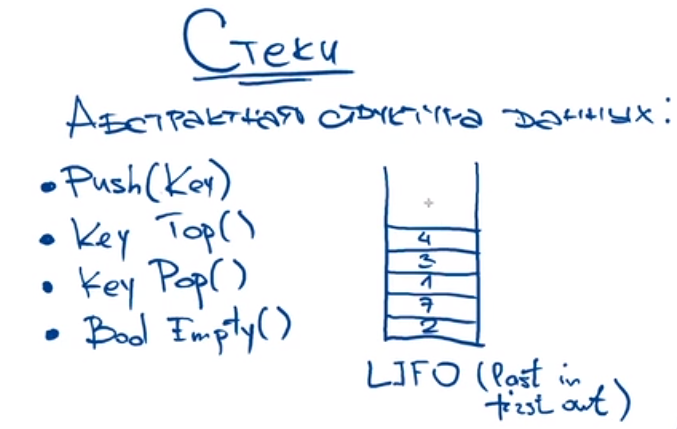 Стеки
Абстрактная структура данных:
• Push(Key)
• Key Top()
• Key Pop()
• Bool Empty()
4
3
1
7
2
LIFO (last in
first out)